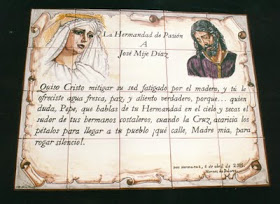 La Hermandad de Pasión
A
José Mije Díaz
Quiso Cristo mitigar su sed fatigado por el madero, y tú le
ofreciste agua fresca, paz, y aliento verdadero, porque... quien
duda, Pepe, que hablas de tu Hermandad en el cielo y secas el
sudor de tus hermanos costaleros, cuando la Cruz, acaricia los
pétalos para llegar a tu pueblo ¡qué calle, Madre mía, para
rogar silencio!.